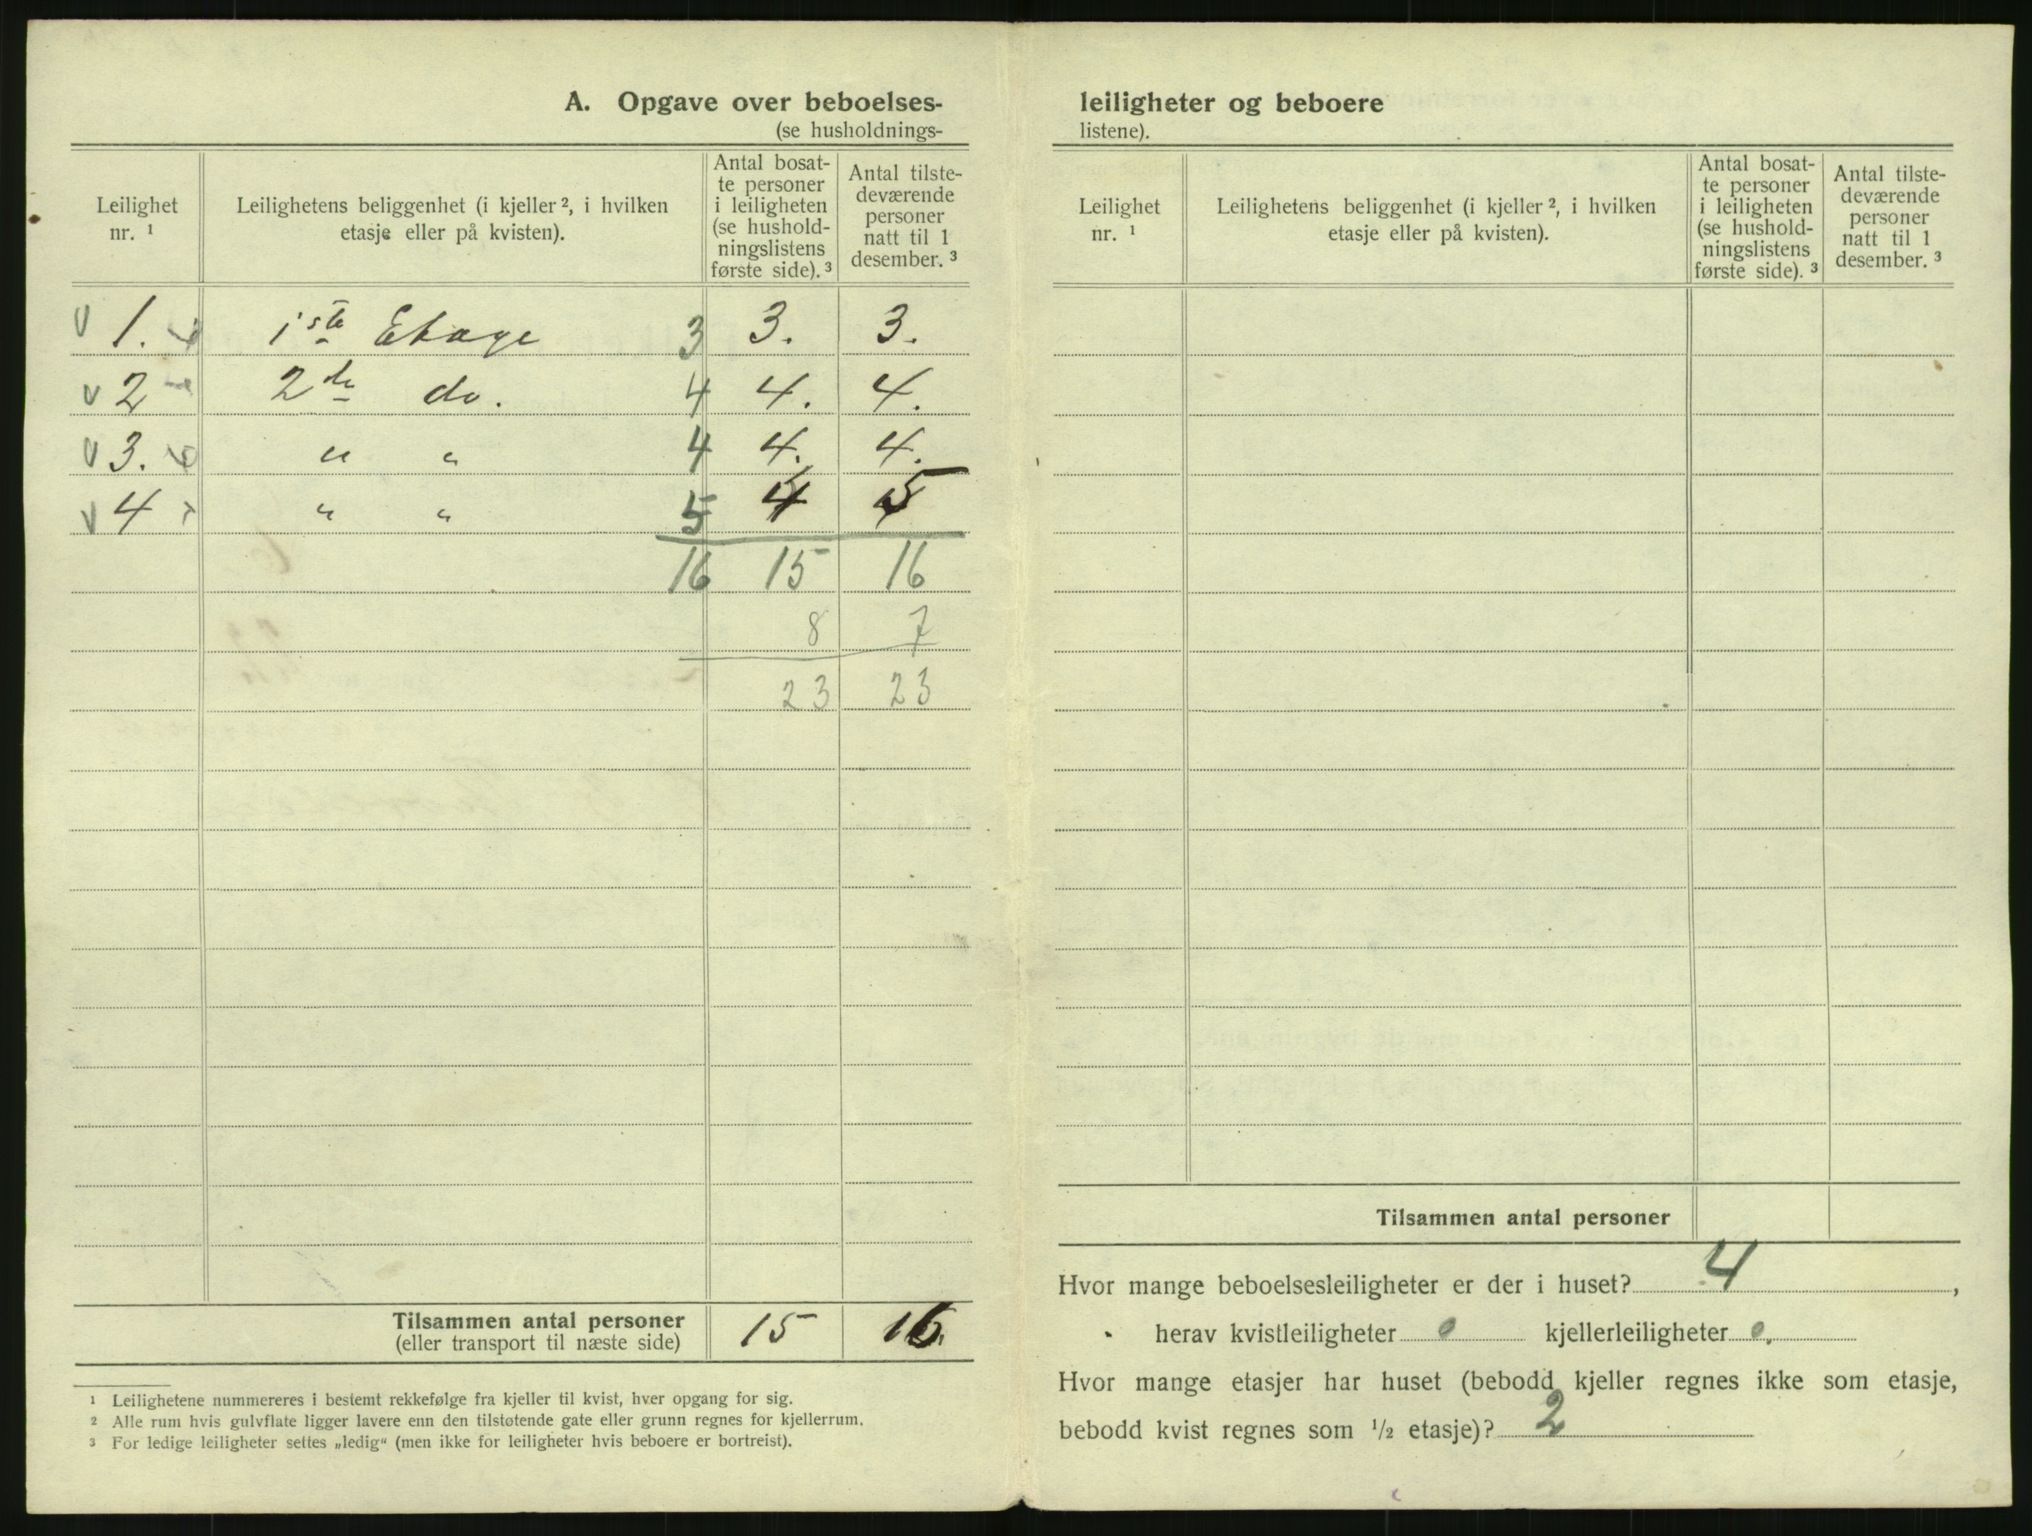 A. Opgave over beboelses-
(se husholdnings-
Leilighet nr. ¹
Leilighetens beliggenhet (i kjeller ², i hvilken etasje eller på kvisten).
Antal bosat-
te personer
i leiligheten
(se hushold-
ningslistens
første side). ³
Antal tilste-
deværende
personer
natt til 1
desember. ³
v 1. 1ste Etage 3 3. 3.
v 2 2de do. 4 4. 4.
v 3. " " 4 4. 4.
v 4 " " 5 4 5
16 15 16
8 7
23 23
Tilsammen antal personer 15 16.
(eller transport til næste side)
¹ Leilighetene nummereres i bestemt rekkefølge fra kjeller til kvist, hver opgang for sig.
² Alle rum hvis gulvflate ligger lavere enn den tilstøtende gate eller grunn regnes for kjellerrum.
³ For ledige leiligheter settes „ledig“ (men ikke for leiligheter hvis beboere er bortreist).
leiligheter og beboere
listene).
Leilighet nr. ¹
Leilighetens beliggenhet (i kjeller ², i hvilken etasje eller på kvisten).
Antal bosat-
te personer
i leiligheten
(se hushold-
ningslistens
første side). ³
Antal tilste-
deværende
personer
natt til 1
desember. ³
Tilsammen antal personer
Hvor mange beboelsesleiligheter er der i huset? 4,
herav kvistleiligheter 0 kjellerleiligheter 0.
Hvor mange etasjer har huset (bebodd kjeller regnes ikke som etasje,
bebodd kvist regnes som ½ etasje)? 2